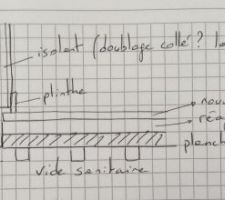 isolant (doublage collé ?
plinthe
nou
réa
planch
vide sanitaire